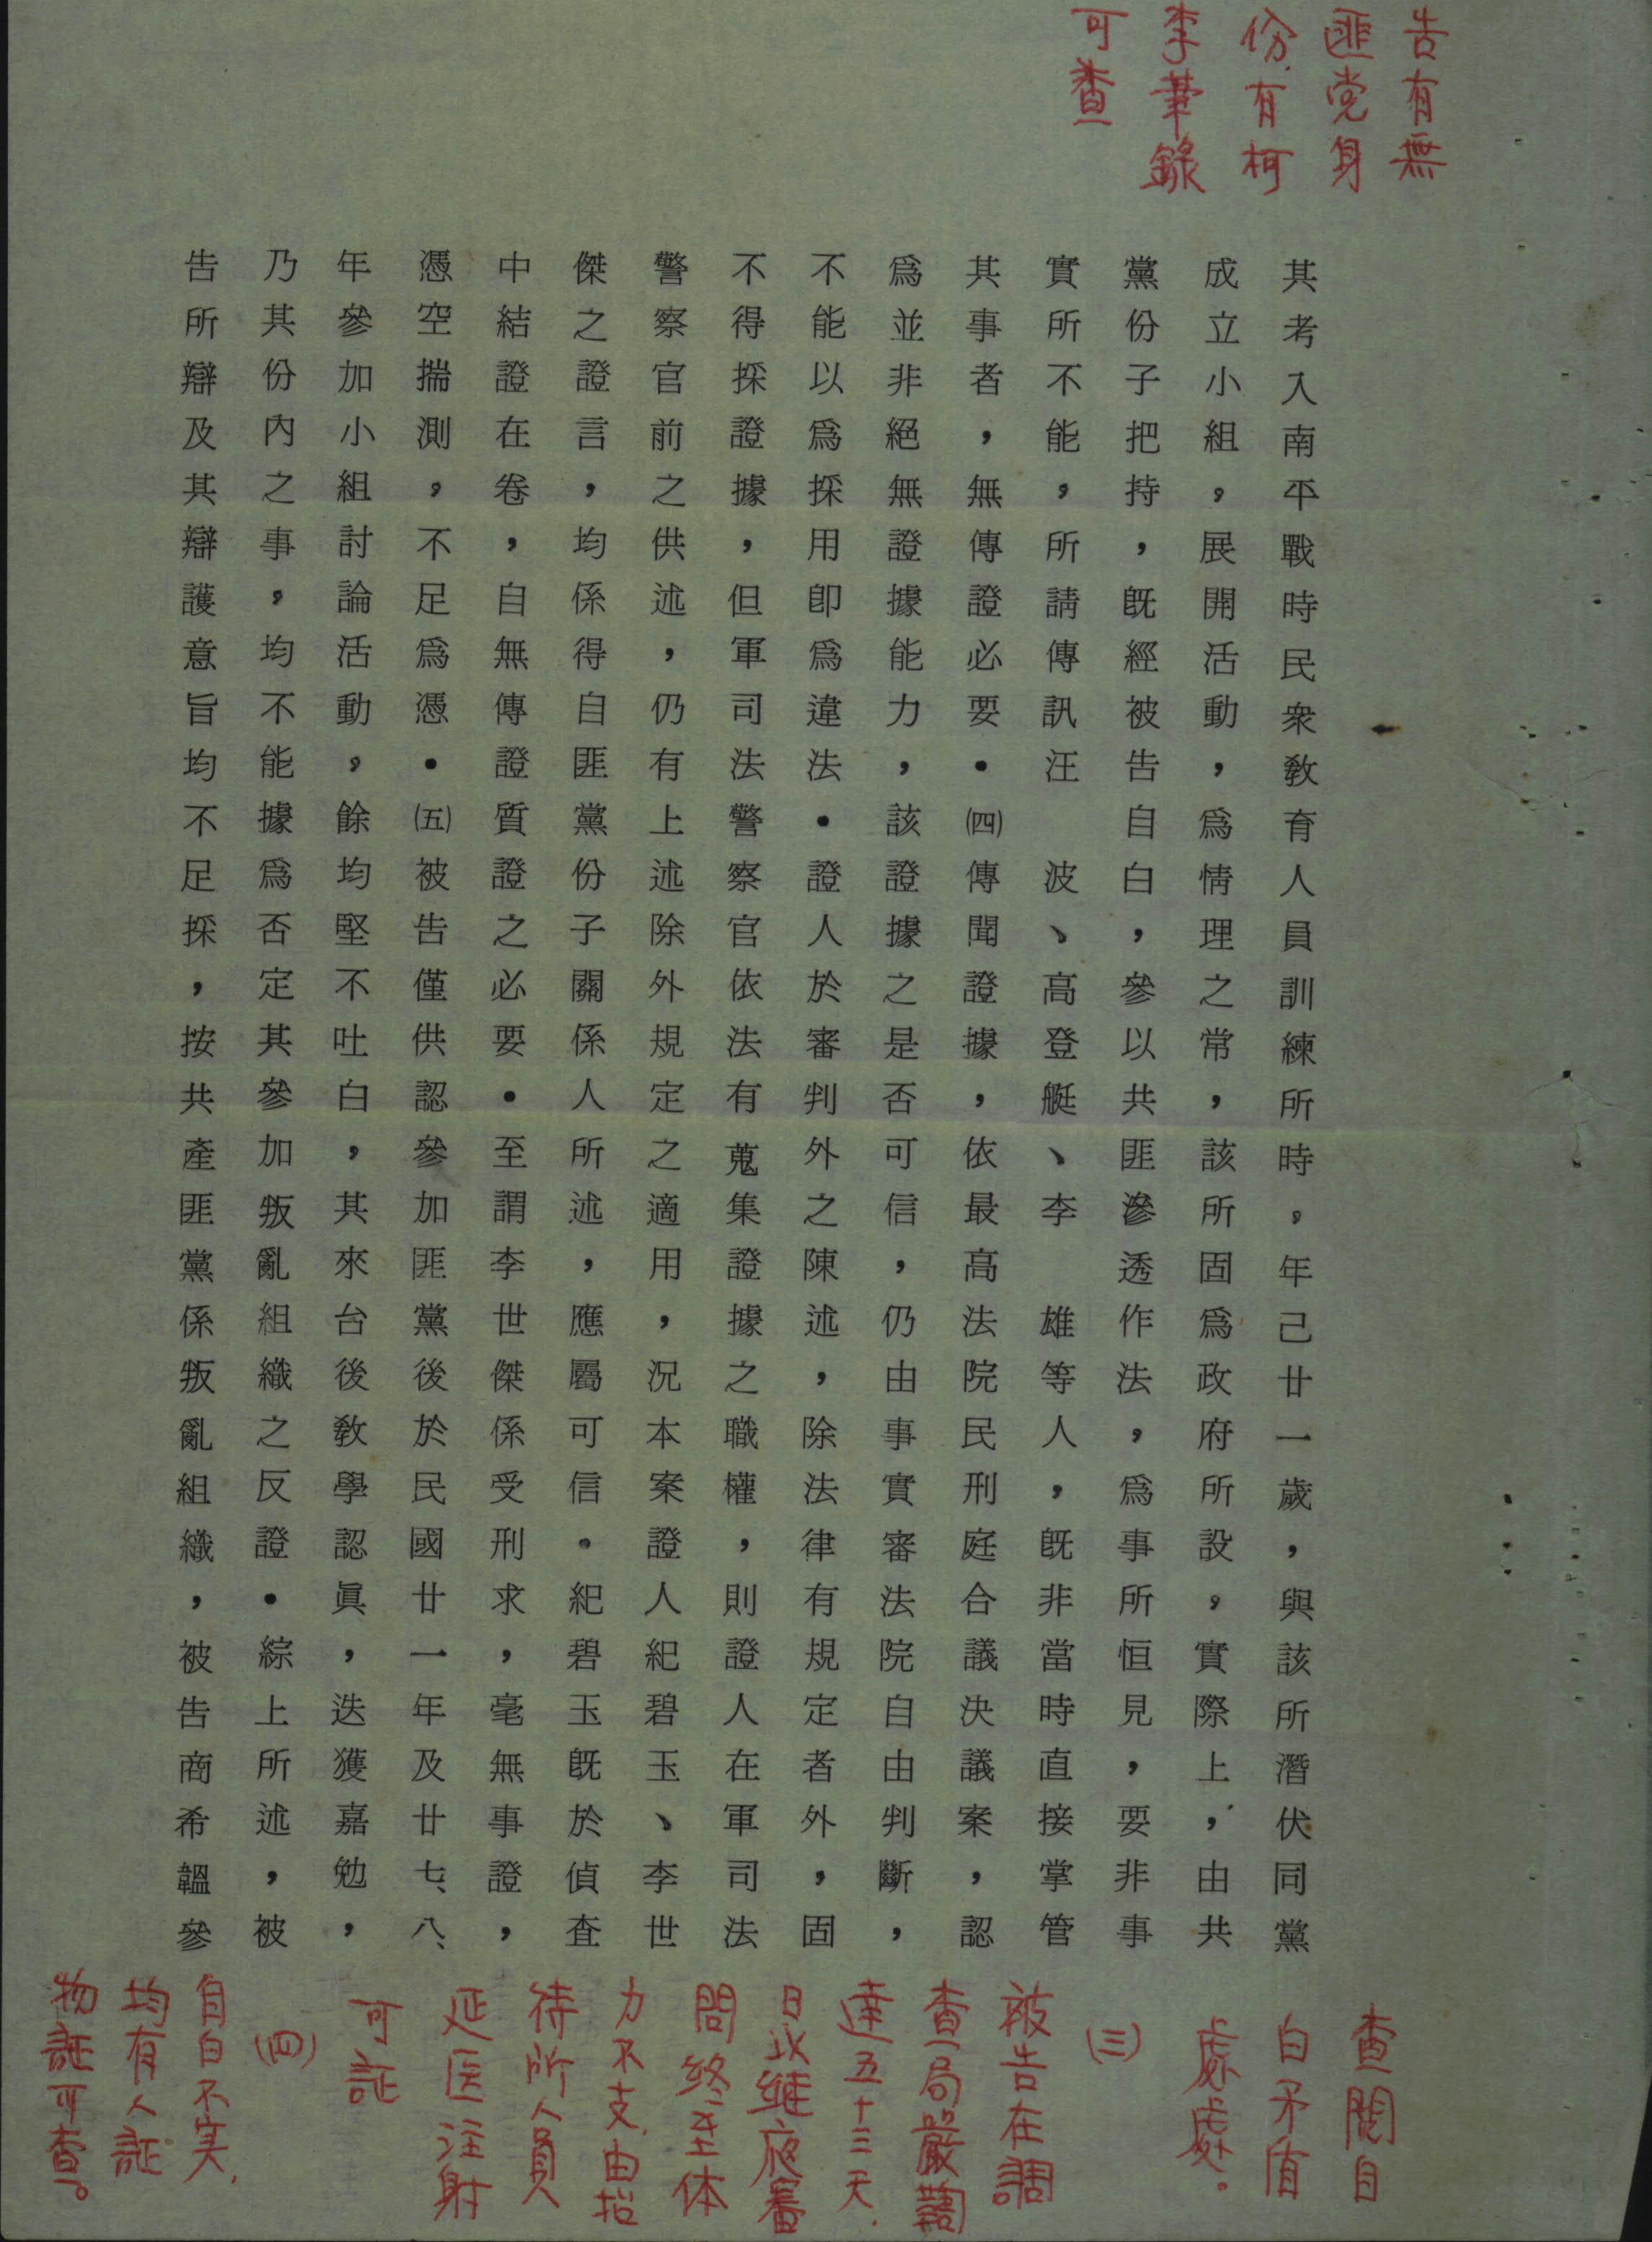 告有無
匪党身
份、有柯
李筆錄
可查
其考入南平戰時民衆敎育人員訓練所時，年已廿一歲，與該所潛伏同黨
成立小組，展開活動，爲情理之常，該所固爲政府所設，實際上，由共
黨份子把持，旣經被告自白，參以共匪滲透作法，爲事所恒見，要非事
實所不能，所請傳訊汪波、高登艇、李雄等人，旣非當時直接掌管
其事者，無傳證必要．㈣傳聞證據，依最高法院民刑庭合議決議案，認
爲並非絕無證據能力，該證據之是否可信，仍由事實審法院自由判斷，
不能以爲採用卽爲違法．證人於審判外之陳述，除法律有規定者外，固
不得採證據，但軍司法警察官依法有蒐集證據之職權，則證人在軍司法
警察官前之供述，仍有上述除外規定之適用，況本案證人紀碧玉、李世
傑之證言，均係得自匪黨份子關係人所述，應屬可信．紀碧玉旣於偵查
中結證在卷，自無傳證質證之必要．至謂李世傑係受刑求，毫無事證，
憑空揣測，不足爲憑．㈤被告僅供認參加匪黨後於民國廿一年及廿七、八、
年參加小組討論活動，餘均堅不吐白，其來台後敎學認眞，迭獲嘉勉，
乃其份內之事，均不能據爲否定其參加叛亂組織之反證．綜上所述，被
告所辯及其辯護意旨均不足採，按共產匪黨係叛亂組織，被告商希韞參
查閱自
白矛盾
處處。
(三)
被告在調
查局嚴鞫
達五十三天、
日以継夜審
問終至体
力不支、由招
待所人員
延医注射
可証
(四)
自白不实、
均有人証
物証可查。